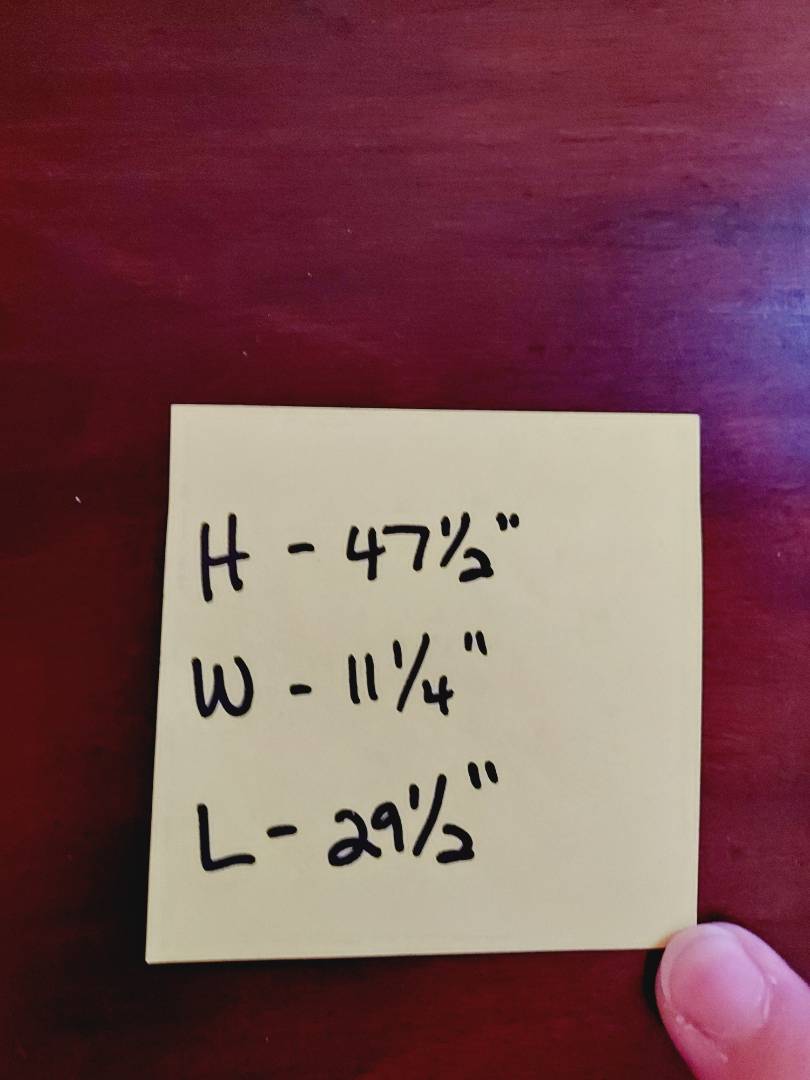 H - 47 1/2"
W - 11 1/4"
L - 29 1/2"